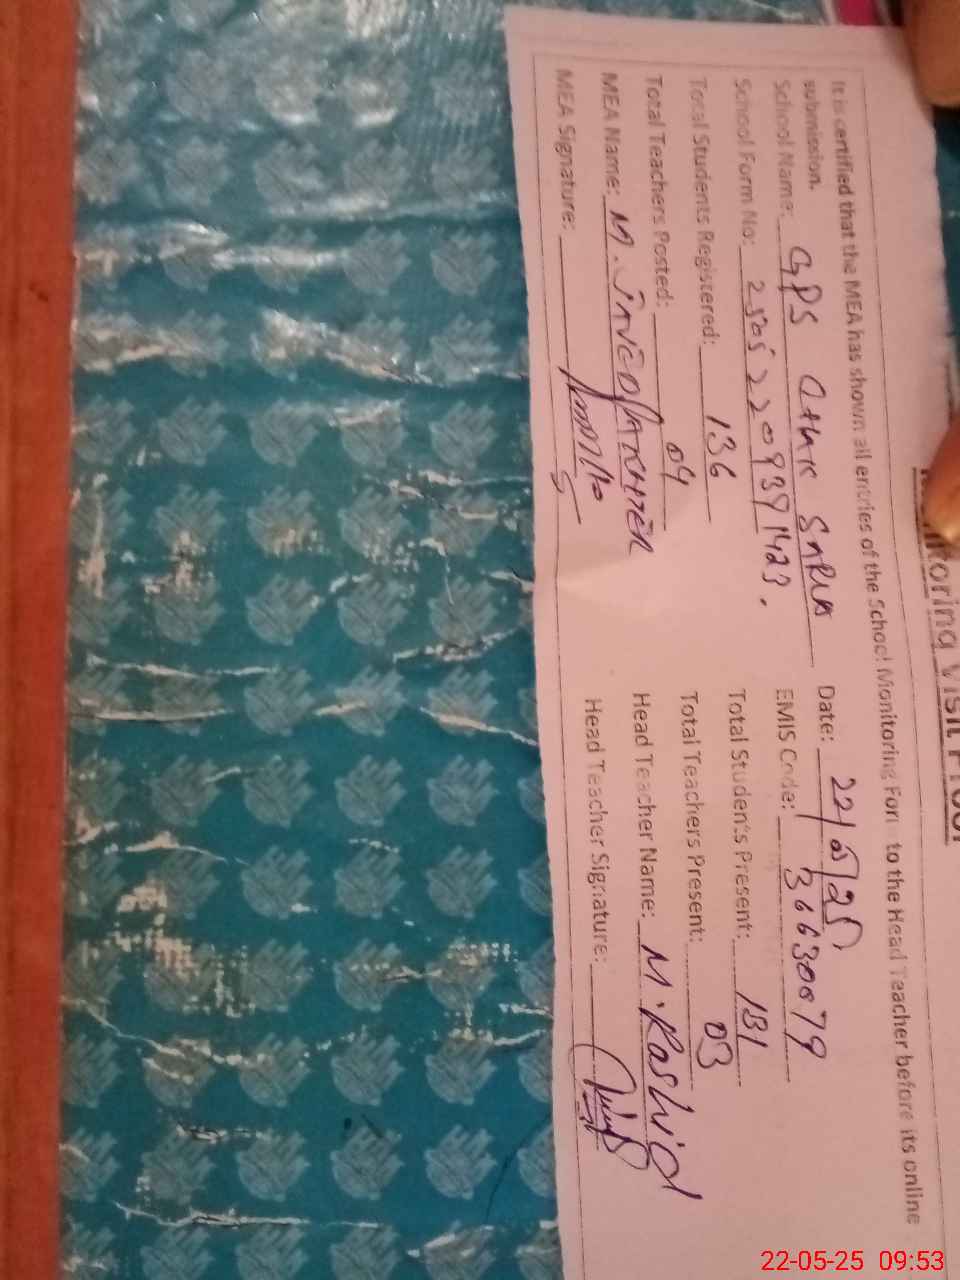 Monitoring Visit Proof
It is certified that the MEA has shown all entries of the School Monitoring Form to the Head Teacher before its online
submission.
School Name: GPS Date: 22/05/25
School Form No: EMIS Code: 36630079
Total Students Registered: 136 Total Students Present: 131
Total Teachers Posted: 04 Total Teachers Present: 03
MEA Name: M. Head Teacher Name: M. Rashid
MEA Signature: Head Teacher Signature:
22-05-25 09:53